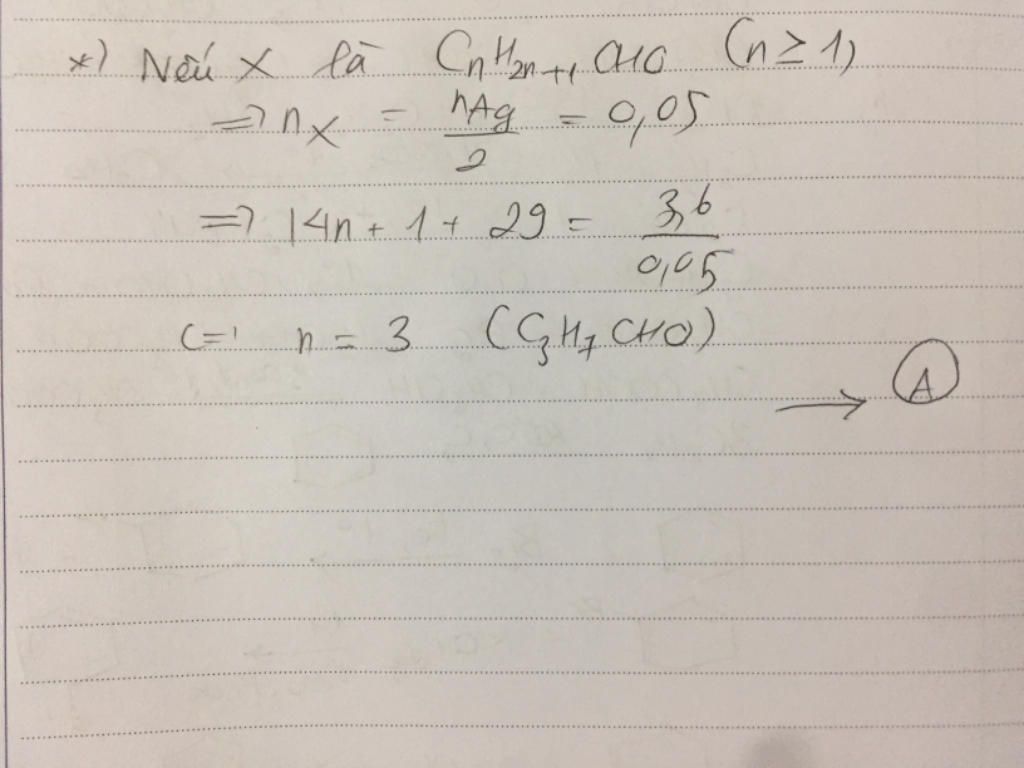 *) Nếu X là CnH2n+1CHO (n ≥ 1)
=> nX = nAg/2 = 0,05
=> 14n + 1 + 29 = 3,6/0,05
<=> n = 3 (C3H7CHO)
→ A